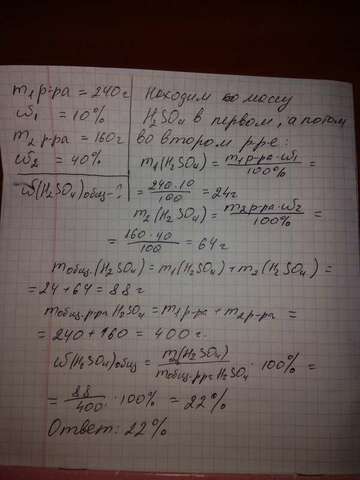 m₁ р-ра = 240 г
ω₁ = 10%
m₂ р-ра = 160 г
ω₂ = 40%
ω(H₂SO₄)общ - ?
Находим массу
H₂SO₄ в первом, а потом
во втором р-ре:
m₁(H₂SO₄) = m₁ р-ра · ω₁ / 100% =
= 240 · 10 / 100 = 24 г
m₂(H₂SO₄) = m₂ р-ра · ω₂ / 100% =
= 160 · 40 / 100 = 64 г
mобщ.(H₂SO₄) = m₁(H₂SO₄) + m₂(H₂SO₄) =
= 24 + 64 = 88 г
mобщ. р-ра H₂SO₄ = m₁ р-ра + m₂ р-ра =
= 240 + 160 = 400 г.
ω(H₂SO₄)общ = m(H₂SO₄) / mобщ. р-ра H₂SO₄ · 100% =
= 88 / 400 · 100% = 22%
Ответ: 22%